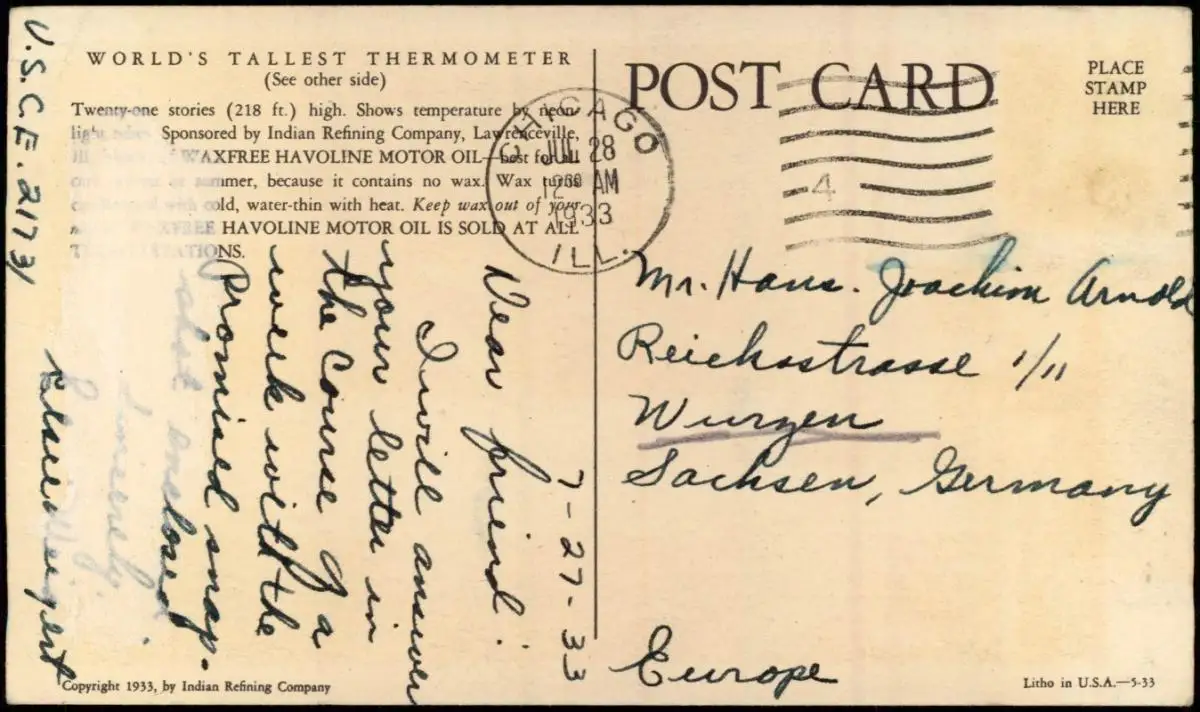 WORLD'S TALLEST THERMOMETER
(See other side)
Twenty-one stories (218 ft.) high. Shows temperature by neon
light tubes. Sponsored by Indian Refining Company, Lawrenceville,
Ill. of WAXFREE HAVOLINE MOTOR OIL—best for all
cars, or summer, because it contains no wax. Wax turns
with cold, water-thin with heat. Keep wax out of your
WAXFREE HAVOLINE MOTOR OIL IS SOLD AT ALL
STATIONS.
POST CARD
PLACE
STAMP
HERE
CHICAGO
JUL 28
AM
1933
ILL.
4
U.S.C.E. 21731
7-27-33
Dear friend:
I will answer
your letter in
the course of a
week with the
promised snap-
shot enclosed
Sincerely,
Mr. Hans. Joachim Arnold
Reichsstrasse 1/11
Wurzen
Sachsen, Germany
Europe
Copyright 1933, by Indian Refining Company
Litho in U.S.A.—5-33